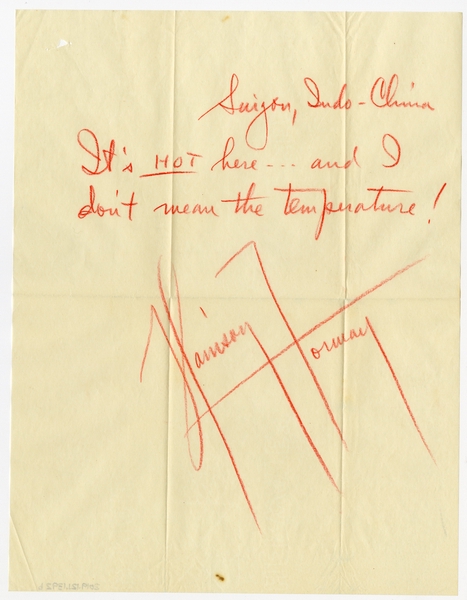 Saigon, Indo-China
It's HOT here--- and I
don't mean the temperature!
Harrison Forman